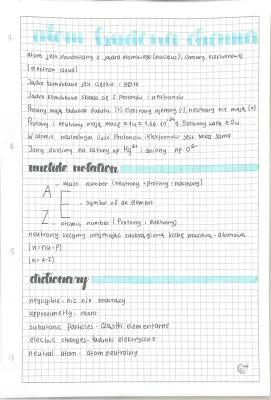 Atom jest zbudowany z jądra atomowego (nucleus) i chmury elektronowej
(electron cloud)
Jądro komórkowe jest ciężkie i gęste
Jądro komórkowe składa się z protonów i neutronów
Protony mają ładunek dodatni (+), Elektrony ujemny (-), neutrony nie mają (o)
Protony i neutrony mają masę ≈ 1u = 1,66 · 10⁻²⁴g. Elektrony masę ≈ 0u
W atomie neutralnym ilość Protonów i Elektronów jest taka sama
Jony dzielimy na kationy np Mg²⁺ i aniony np O²⁻
nuclide notation
A - Mass number (neutrony + protony = nukleony)
E - Symbol of an element
Z - atomic number (Protony)
neutrony liczymy odejmując
(n=nu-p)
(n=A-Z)
dictionary
negligible - nic nie znaczący
approximetly - około
subatomic particles - cząstki elementarne
electric changes - ładunki elektryczne
neutral atom - atom neutralny